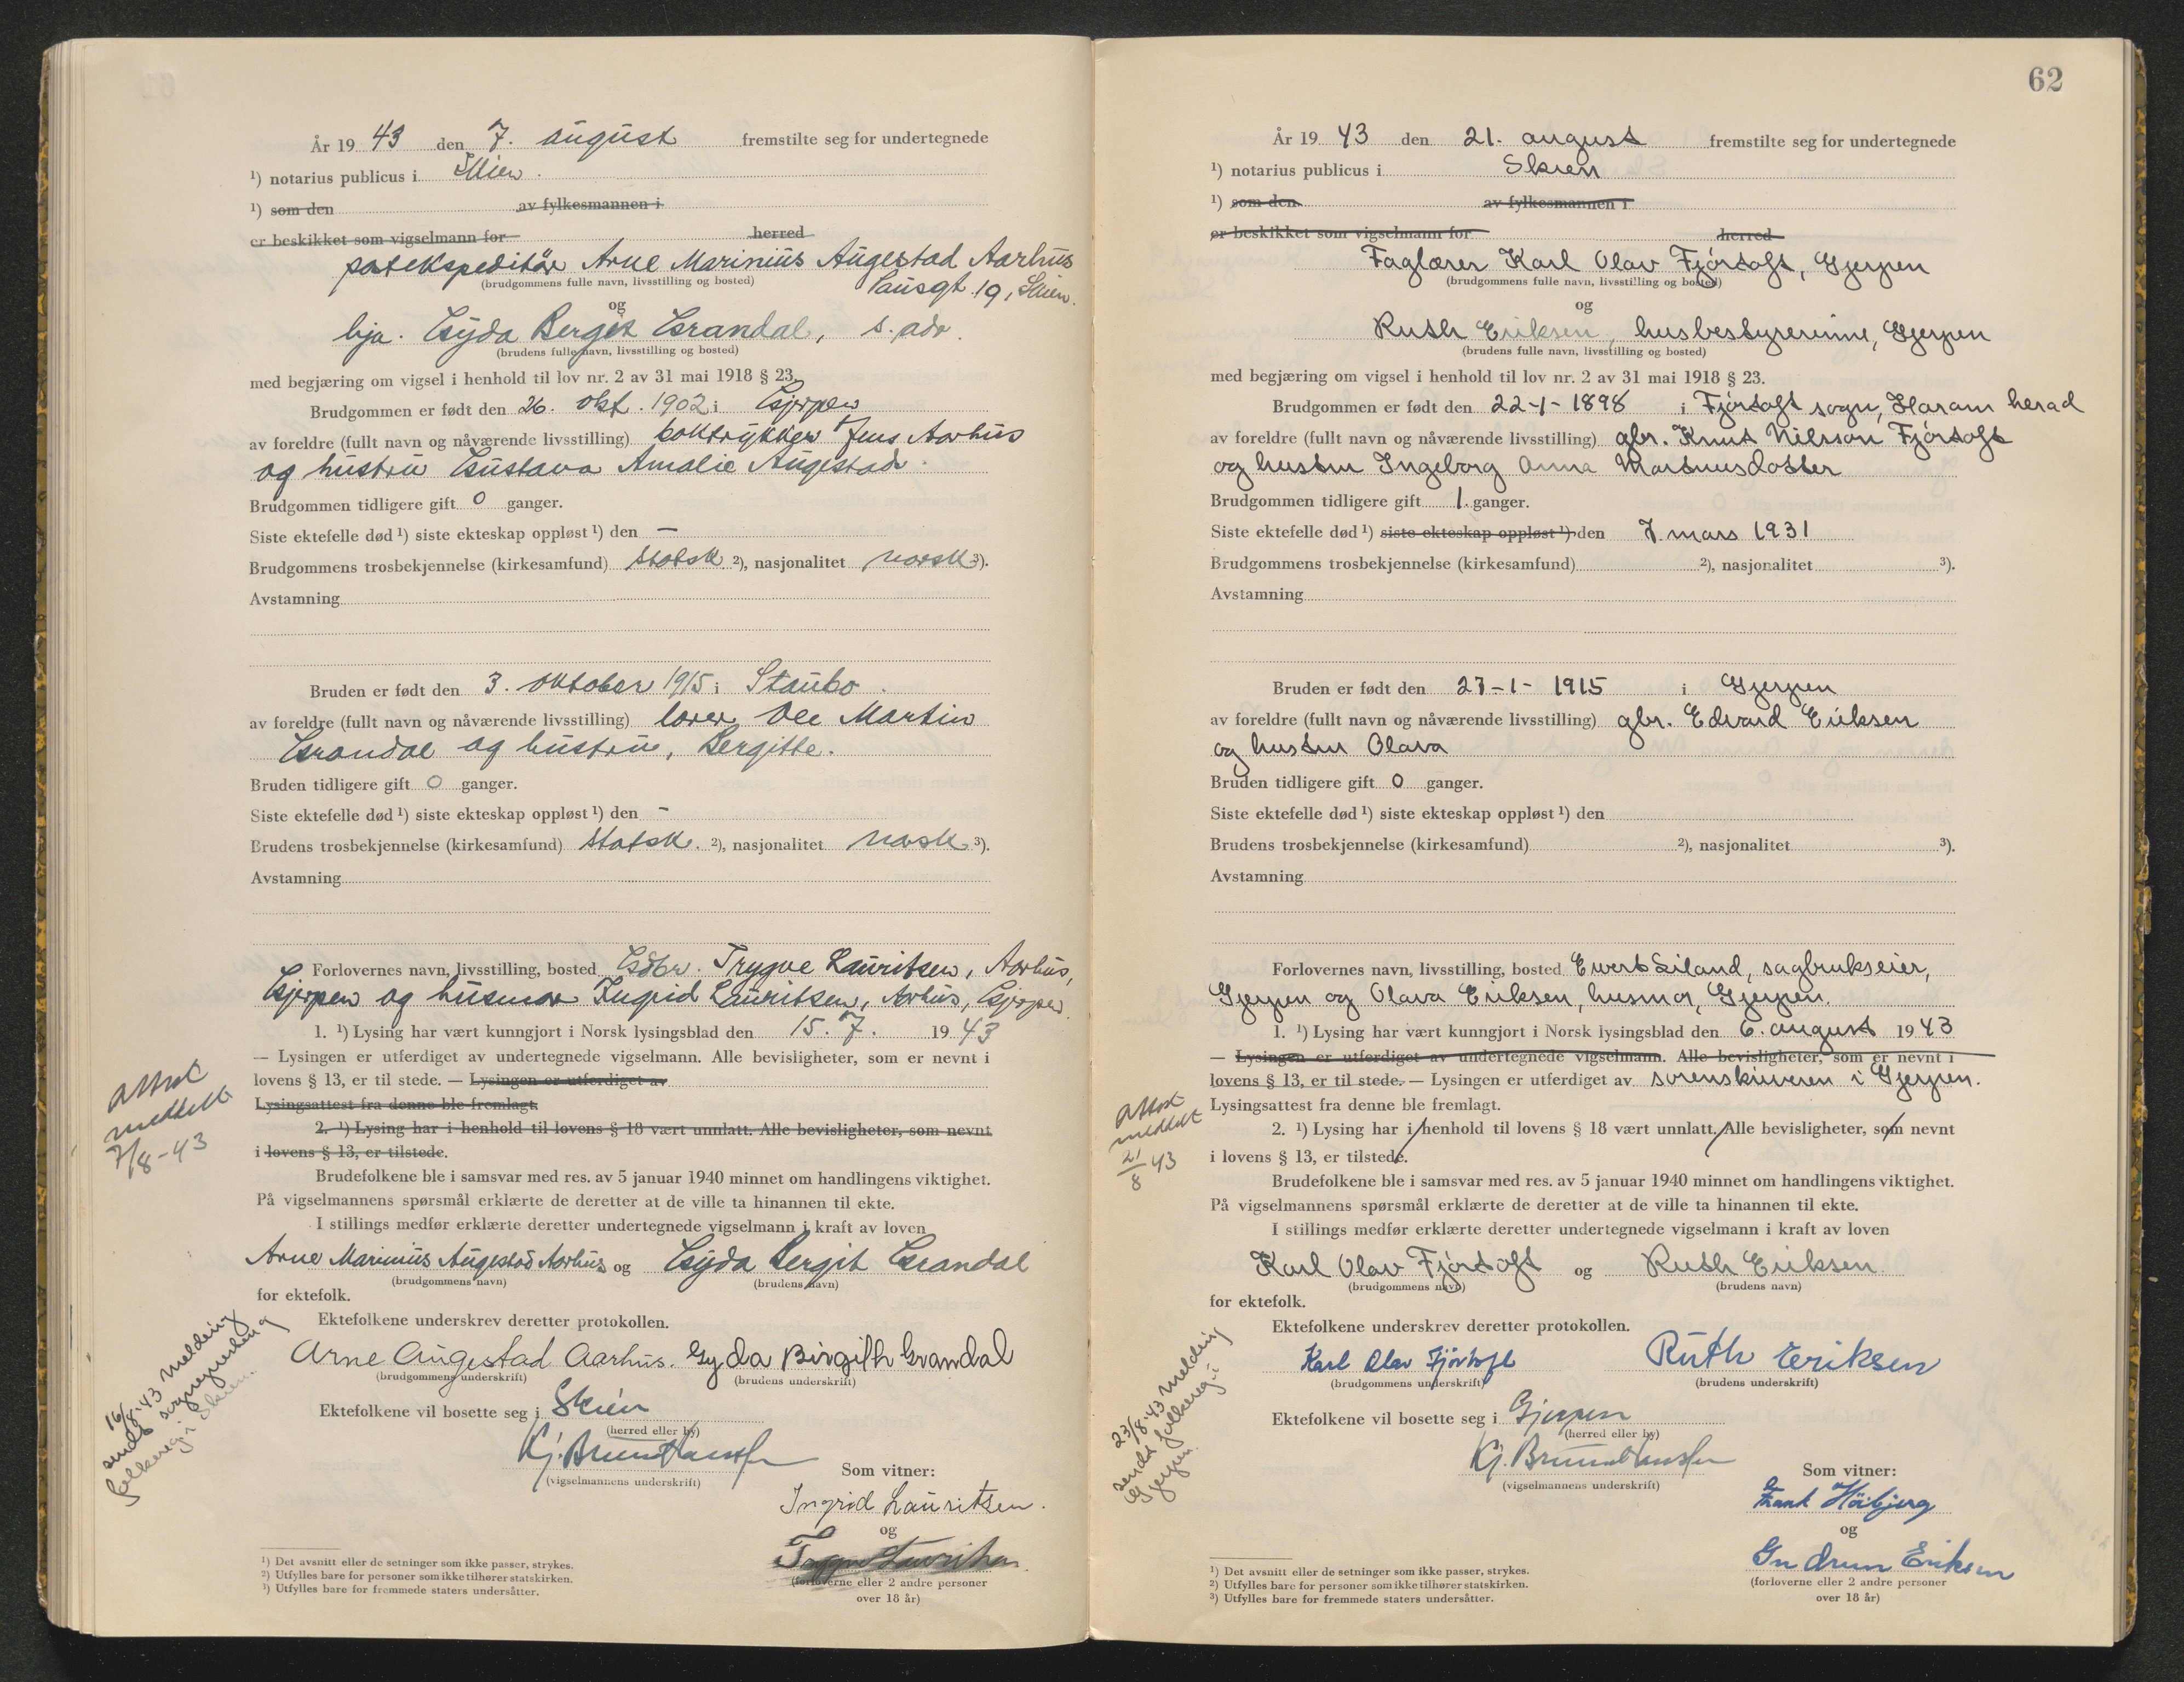 År 19 43 den 7. august fremstilte seg for undertegnede
¹) notarius publicus i Skien.
¹) som den av fylkesmannen i
er beskikket som vigselmann for herred
postekspeditör Arne Marinius Augestad Aarhus
(brudgommens fulle navn, livsstilling og bosted) Pausgt. 19, Skien.
og
hja. Gyda Bergit Grandal, s. adr.
(brudens fulle navn, livsstilling og bosted)
med begjæring om vigsel i henhold til lov nr. 2 av 31 mai 1918 § 23.
Brudgommen er født den 26. okt. 1902 i Gjerpen
av foreldre (fullt navn og nåværende livsstilling) boktrykker Jens Aarhus
og hustru Gustava Amalie Augestad.
Brudgommen tidligere gift 0 ganger.
Siste ektefelle død ¹) siste ekteskap oppløst ¹) den –
Brudgommens trosbekjennelse (kirkesamfund) statsk. ²), nasjonalitet norsk ³).
Avstamning
Bruden er født den 3. oktober 1915 i Staubo.
av foreldre (fullt navn og nåværende livsstilling) lærer Ole Martin
Grandal og hustru, Bergitte.
Bruden tidligere gift 0 ganger.
Siste ektefelle død ¹) siste ekteskap oppløst ¹) den –
Brudens trosbekjennelse (kirkesamfund) statsk. ²), nasjonalitet norsk ³).
Avstamning
Forlovernes navn, livsstilling, bosted Gdbr. Trygve Lauritsen, Aarhus,
Gjerpen og husmor Ingrid Lauritsen, Aarhus, Gjerpen.
1. ¹) Lysing har vært kunngjort i Norsk lysingsblad den 15. 7. 19 43
— Lysingen er utferdiget av undertegnede vigselmann. Alle bevisligheter, som er nevnt i
lovens § 13, er til stede. — Lysingen er utferdiget av
Lysingsattest fra denne ble fremlagt.
2. ¹) Lysing har i henhold til lovens § 18 vært unnlatt. Alle bevisligheter, som nevnt
i lovens § 13, er tilstede.
Attest
meddelt
7/8-43
Brudefolkene ble i samsvar med res. av 5 januar 1940 minnet om handlingens viktighet.
På vigselmannens spørsmål erklærte de deretter at de ville ta hinannen til ekte.
I stillings medfør erklærte deretter undertegnede vigselmann i kraft av loven
Arne Marinius Augestad Aarhus og Gyda Bergit Grandal
(brudgommens navn) (brudens navn)
for ektefolk.
Ektefolkene underskrev deretter protokollen.
Arne Augestad Aarhus. Gyda Birgith Grandal
(brudgommens underskrift) (brudens underskrift)
Ektefolkene vil bosette seg i Skien
(herred eller by)
Kj. Bruun Hanssen
(vigselmannens underskrift)
16/8-43 melding
sendt sogneprest og
folkereg. i Skien.
Som vitner:
Ingrid Lauritsen.
og
Trygve Lauritsen
(forloverne eller 2 andre personer
over 18 år)
¹) Det avsnitt eller de setninger som ikke passer, strykes.
²) Utfylles bare for personer som ikke tilhører statskirken.
³) Utfylles bare for fremmede staters undersåtter.
62
År 19 43 den 21. august fremstilte seg for undertegnede
¹) notarius publicus i Skien
¹) som den av fylkesmannen i
er beskikket som vigselmann for herred
Faglærer Karl Olav Fjörtoft, Gjerpen
(brudgommens fulle navn, livsstilling og bosted)
og
Ruth Eriksen, husbestyrerinne, Gjerpen
(brudens fulle navn, livsstilling og bosted)
med begjæring om vigsel i henhold til lov nr. 2 av 31 mai 1918 § 23.
Brudgommen er født den 22-1-1898 i Fjörtoft sogn, Haram herad
av foreldre (fullt navn og nåværende livsstilling) gbr. Knut Nilsson Fjörtoft
og hustru Ingeborg Anna Martinusdotter
Brudgommen tidligere gift 1. ganger.
Siste ektefelle død ¹) siste ekteskap oppløst ¹) den 7 mars 1931
Brudgommens trosbekjennelse (kirkesamfund) ²), nasjonalitet ³).
Avstamning
Bruden er født den 27-1-1915 i Gjerpen
av foreldre (fullt navn og nåværende livsstilling) gbr. Edvard Eriksen
og hustru Olava
Bruden tidligere gift 0 ganger.
Siste ektefelle død ¹) siste ekteskap oppløst ¹) den
Brudens trosbekjennelse (kirkesamfund) ²), nasjonalitet ³).
Avstamning
Forlovernes navn, livsstilling, bosted Ewert Siland, sagbrukseier,
Gjerpen og Olava Eriksen, husmor, Gjerpen.
1. ¹) Lysing har vært kunngjort i Norsk lysingsblad den 6. august 19 43
— Lysingen er utferdiget av undertegnede vigselmann. Alle bevisligheter, som er nevnt i
lovens § 13, er til stede. — Lysingen er utferdiget av sorenskriveren i Gjerpen.
Lysingsattest fra denne ble fremlagt.
2. ¹) Lysing har i henhold til lovens § 18 vært unnlatt. Alle bevisligheter, som nevnt
i lovens § 13, er tilstede.
Attest
meddelt
21/8 43
Brudefolkene ble i samsvar med res. av 5 januar 1940 minnet om handlingens viktighet.
På vigselmannens spørsmål erklærte de deretter at de ville ta hinannen til ekte.
I stillings medfør erklærte deretter undertegnede vigselmann i kraft av loven
Karl Olav Fjörtoft og Ruth Eriksen
(brudgommens navn) (brudens navn)
for ektefolk.
Ektefolkene underskrev deretter protokollen.
Karl Olav Fjörtoft Ruth Eriksen
(brudgommens underskrift) (brudens underskrift)
Ektefolkene vil bosette seg i Gjerpen
(herred eller by)
Kj. Bruun Hanssen
(vigselmannens underskrift)
23/8-43 melding
sendt folkereg. i
Gjerpen.
Som vitner:
Frank Höibjerg
og
Gudrun Eriksen
(forloverne eller 2 andre personer
over 18 år)
¹) Det avsnitt eller de setninger som ikke passer, strykes.
²) Utfylles bare for personer som ikke tilhører statskirken.
³) Utfylles bare for fremmede staters undersåtter.